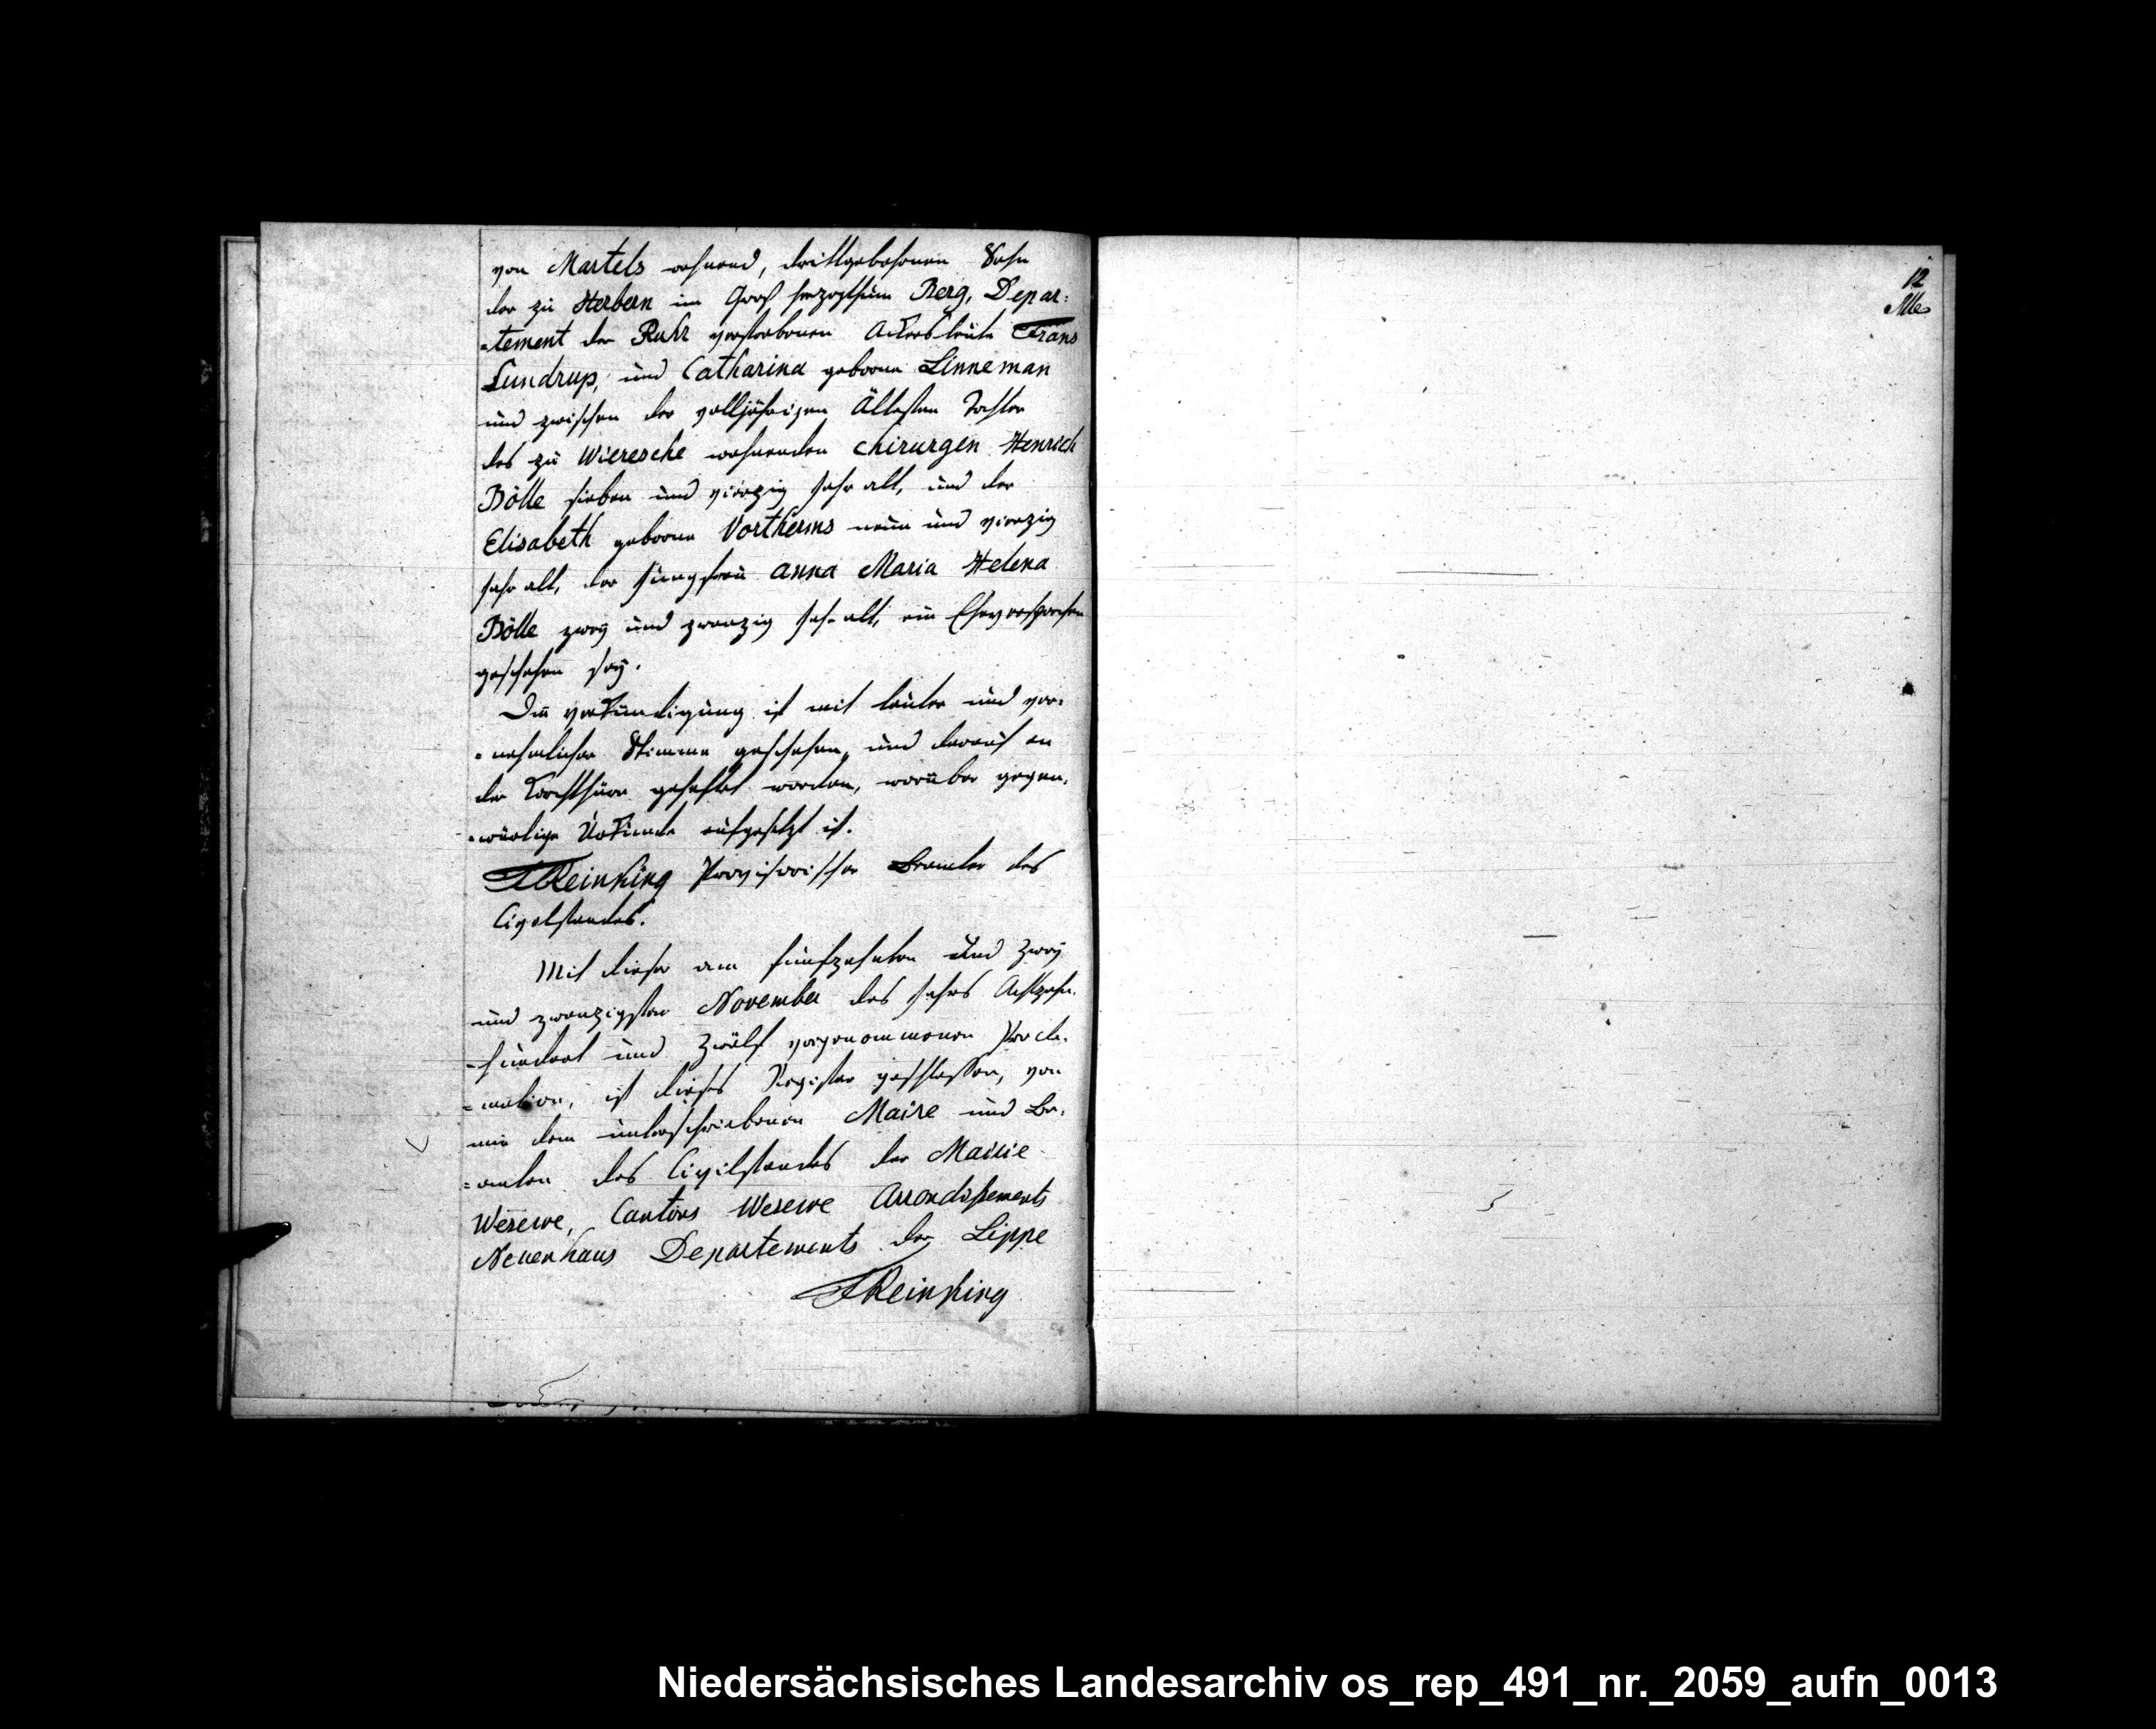 von Martels wohnend, drittgebohrnen Sohn
der zu Herbern im Groß herzogthum Berg, Depar=
=tement der Ruhr verstorbenen Ackersleute Frans
Lundrup, und Catharina geborne Linneman
und zwischen der volljährigen Ältesten Tochter
des zu Wieresche wohnenden Chirurgen Henrich
Bölle sieben und vierzig Jahr alt, und der
Elisabeth geborne Vortherms neun und vierzig
Jahr alt, der Jungfrau Anna Maria Helena
Bölle zwey und zwanzig Jahr alt, ein Eheversprechen
geschehen sey.
Die Verkündigung ist mit lauter und ver=
=nehmlicher Stimme geschehen, und darauf an
der Kirchthüre geheftet worden, worüber gegen=
=wärtige Urkunde aufgesetzt ist.
Reinking Provisorischer Beamter des
Civilstandes.
Mit dieser am fünfzehnten und zwey
und zwanzigsten November des Jahrs Achtzehn=
=hundert und Zwölf vorgenommenen Procla=
=mation, ist dieses Register geschlossen, von
mir dem unterschriebenen Maire und Be=
=amten des Civilstandes der Mairie
Werewe, Cantons Werewe Arrondißements
Neuenhaus Departements der Lippe
Reinking
12
Niedersächsisches Landesarchiv os_rep_491_nr._2059_aufn_0013